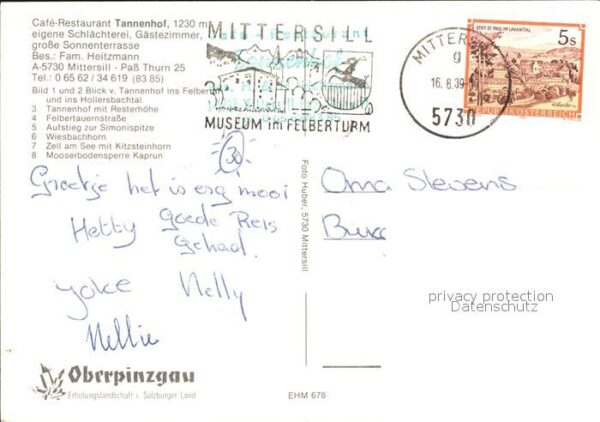 Café-Restaurant Tannenhof, 1230 m
eigene Schlächterei, Gästezimmer,
große Sonnenterrasse
Bes.: Fam. Heitzmann
A-5730 Mittersill - Paß Thurn 25
Tel.: 0 65 62 / 34 619 (83 85)
Bild 1 und 2 Blick v. Tannenhof ins Felber
und ins Hollersbachtal
3 Tannenhof mit Resterhöhe
4 Felbertauernstraße
5 Aufstieg zur Simonispitze
6 Wiesbachhorn
7 Zell am See mit Kitzsteinhorn
8 Mooserbodensperre Kaprun
MITTERSILL
MUSEUM im FELBERTURM
MITTERSILL
g
16. 8. 89
5730
STIFT ST. PAUL IM LAVANTTAL
5s
REPUBLIK ÖSTERREICH
30
Groetje het is erg mooi
Hetty goede Reis
gehad.
yoke Nelly
Nellie
Foto Huber, 5730 Mittersill
Oma Stevens
privacy protection
Datenschutz
Oberpinzgau
Erholungslandschaft i. Salzburger Land
EHM 678